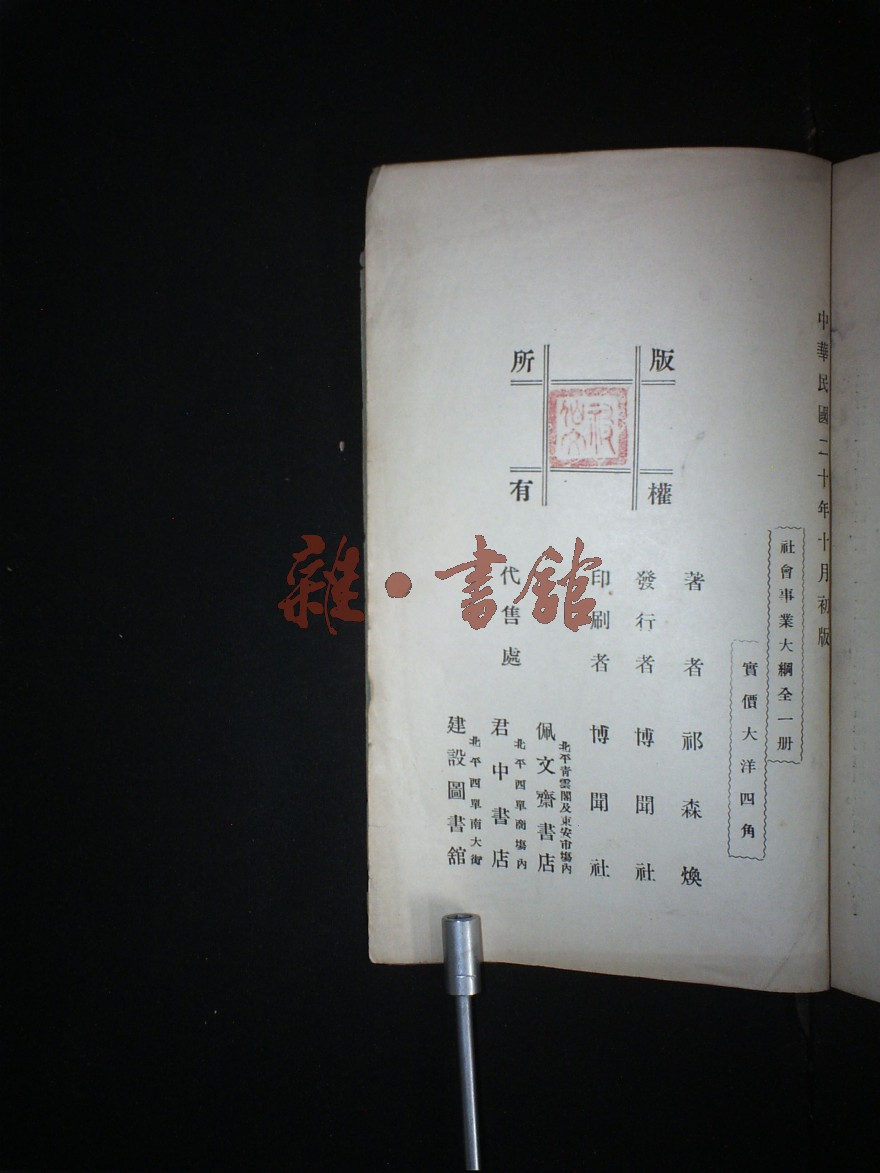 中華民國二十年十月初版
社會事業大綱全一册
實價大洋四角
版權所有
著者 祁森煥
發行者 博聞社
印刷者 博聞社
代售處
北平青雲閣及東安市塲內
佩文齋書店
北平西單商塲內
君中書店
北平西單南大街
建設圖書舘
雜·書舘